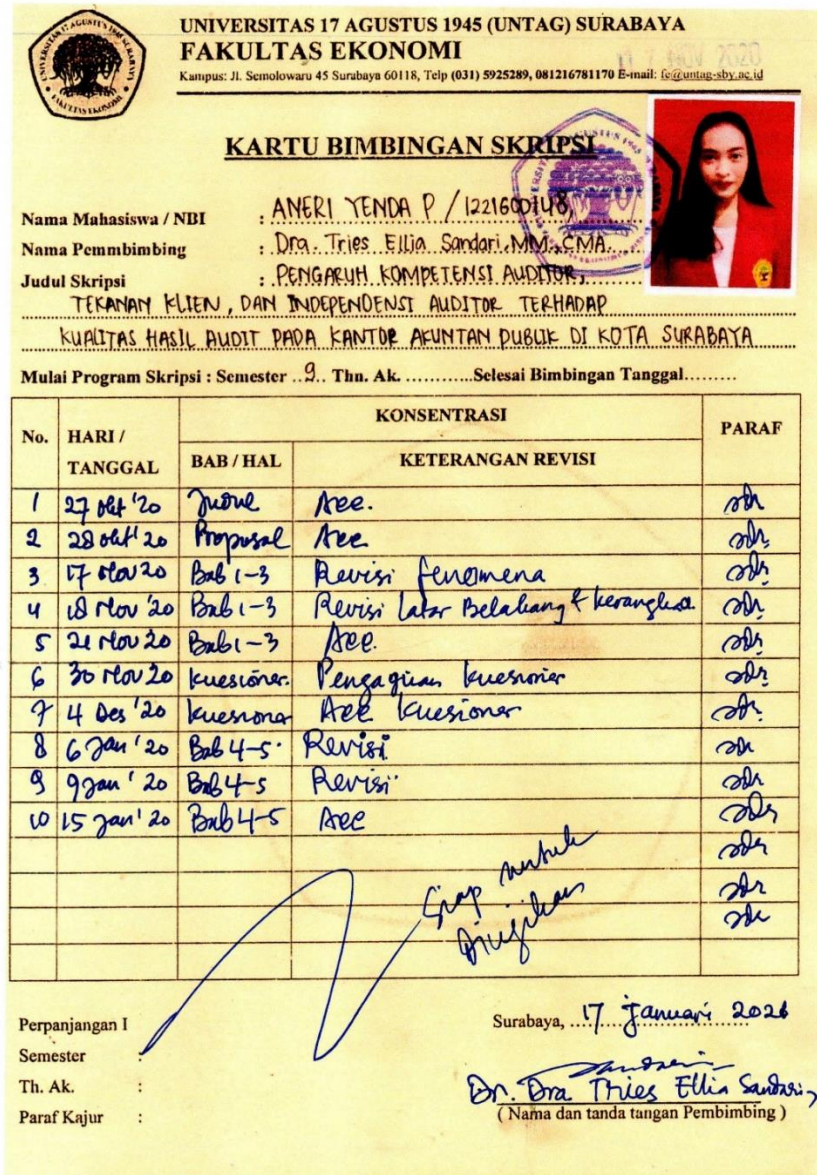 UNIVERSITAS 17 AGUSTUS 1945 (UNTAG) SURABAYA
FAKULTAS EKONOMI
17 NOV 2020
Kampus: Jl. Semolowaru 45 Surabaya 60118, Telp (031) 5925289, 081216781170 E-mail: fe@untag-sby.ac.id
KARTU BIMBINGAN SKRIPSI
Nama Mahasiswa / NBI : ANERI YENDA P / 1221600148
Nama Pemmbimbing : Dra. Tries Ellia Sandari, MM., CMA.
Judul Skripsi : PENGARUH KOMPETENSI AUDITOR,
TEKANAN KLIEN, DAN INDEPENDENSI AUDITOR TERHADAP
KUALITAS HASIL AUDIT PADA KANTOR AKUNTAN PUBLIK DI KOTA SURABAYA
Mulai Program Skripsi : Semester ..9.. Thn. Ak. ............Selesai Bimbingan Tanggal.........
No. HARI / TANGGAL KONSENTRASI PARAF
BAB / HAL KETERANGAN REVISI
1 27 okt '20 Judul Acc.
2 28 okt '20 Proposal Acc
3 17 Nov 20 Bab 1-3 Revisi fenomena
4 18 Nov '20 Bab 1-3 Revisi Latar Belakang & kerangka
5 21 Nov 20 Bab 1-3 Acc.
6 30 Nov 20 kuesioner. Pengajuan kuesioner
7 4 Des '20 kuesioner Acc kuesioner
8 6 Jan '20 Bab 4-5 Revisi
9 9 Jan '20 Bab 4-5 Revisi
10 15 Jan '20 Bab 4-5 Acc
Siap untuk
Diujikan
Perpanjangan I
Surabaya, 17 Januari
Semester :
Th. Ak. :
Dr. Dra Tries Ellia Sandari
Paraf Kajur :
( Nama dan tanda tangan Pembimbing )